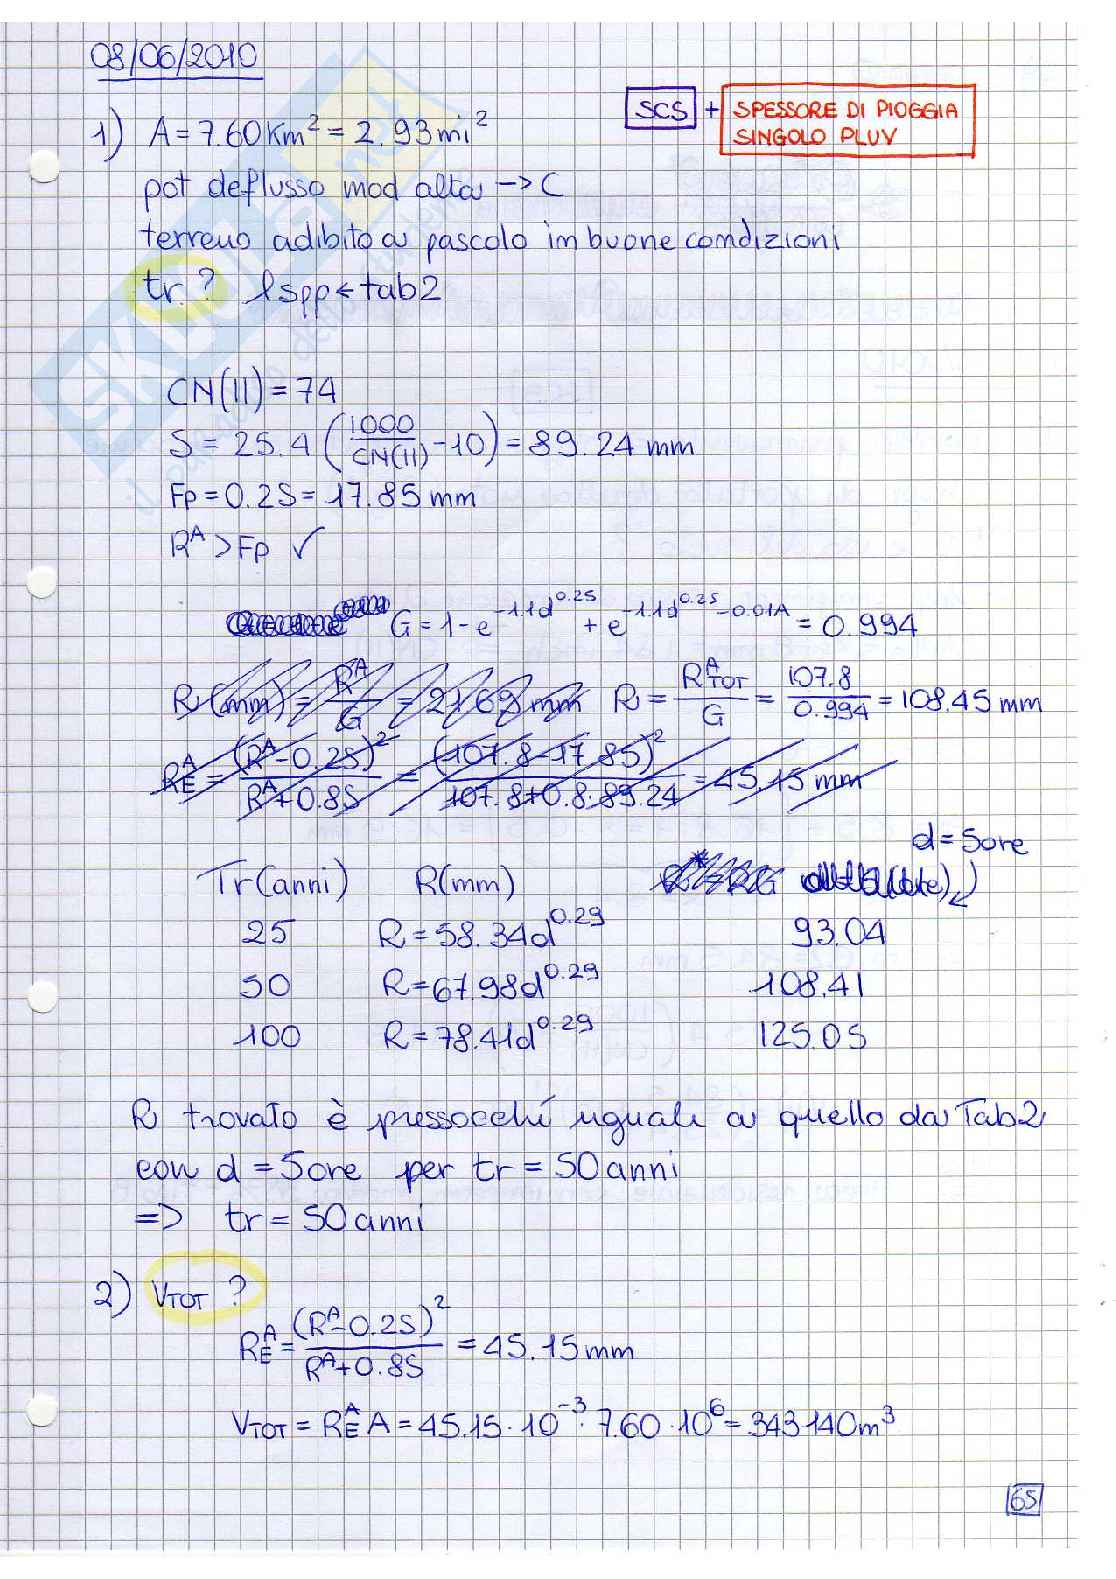 08/06/2010
SCS + SPESSORE DI PIOGGIA
SINGOLO PLUV
1) A = 7.60 Km² = 2.93 mi²
pot deflusso mod alta -> C
terreno adibito a pascolo in buone condizioni
tr ? lspp ← tab2
CN(II) = 74
S = 25.4 (1000/CN(II) - 10) = 89.24 mm
Fp = 0.2S = 17.85 mm
R^A > Fp ✓
G = 1 - e^(-1.1d^0.25) + e^(-1.1d^0.25 - 0.01A) = 0.994
R (mm) = R^A/G = 27.69 mm R = R^A_TOT/G = 107.8/0.994 = 108.45 mm
R^A_E = (R^A - 0.2S)²/(R^A + 0.8S) = (107.8 - 17.85)²/(107.8 + 0.8·89.24) = 45.15 mm
d = 5 ore
Tr (anni) R (mm)
25 R = 58.34d^0.29 93.04
50 R = 67.98d^0.29 108.41
100 R = 78.41d^0.29 125.05
R trovato è pressocché uguale a quello da Tab2
con d = 5 ore per tr = 50 anni
=> tr = 50 anni
2) V_TOT ?
R^A_E = (R^A - 0.2S)²/(R^A + 0.8S) = 45.15 mm
V_TOT = R^A_E A = 45.15 · 10^-3 · 7.60 · 10^6 = 343140 m³
65